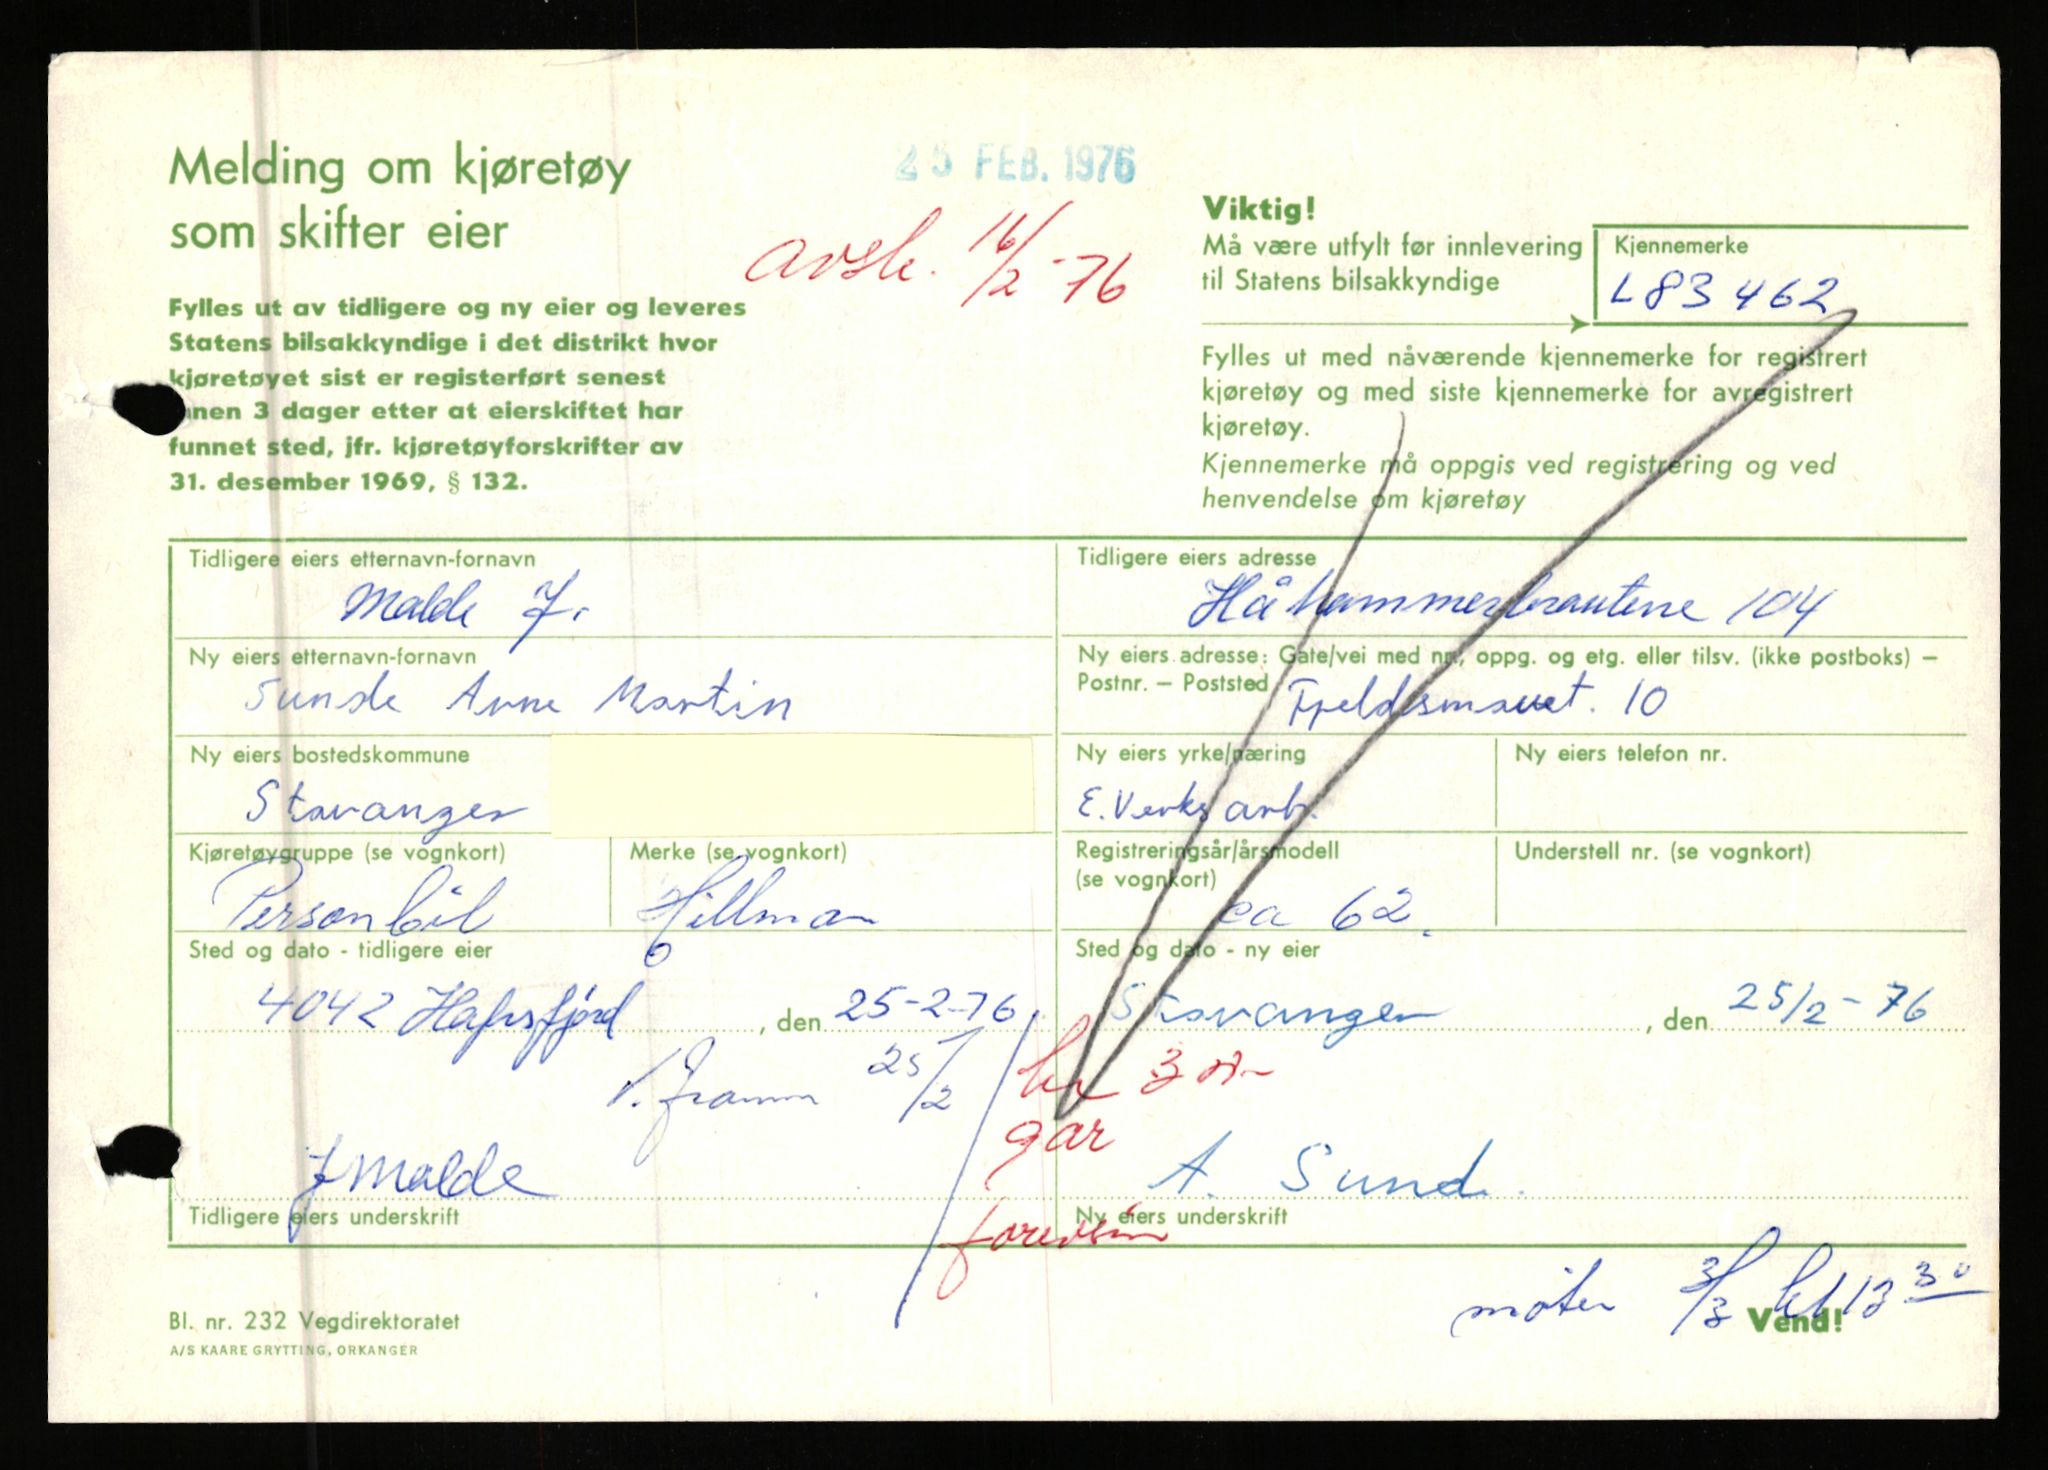 Melding om kjøretøy
som skifter eier
25 FEB. 1976
avsk. 16/2-76
Fylles ut av tidligere og ny eier og leveres
Statens bilsakkyndige i det distrikt hvor
kjøretøyet sist er registerført senest
nnen 3 dager etter at eierskiftet har
funnet sted, jfr. kjøretøyforskrifter av
31. desember 1969, § 132.
Viktig!
Må være utfylt før innlevering
til Statens bilsakkyndige
Kjennemerke
L 83462
Fylles ut med nåværende kjennemerke for registrert
kjøretøy og med siste kjennemerke for avregistrert
kjøretøy.
Kjennemerke må oppgis ved registrering og ved
henvendelse om kjøretøy
Tidligere eiers etternavn-fornavn
Malde J.
Tidligere eiers adresse
Håhammerbrautene 104
Ny eiers etternavn-fornavn
Sunde Arne Martin
Ny eiers adresse: Gate/vei med nr., oppg. og etg. eller tilsv. (ikke postboks) –
Postnr. – Poststed
10
Ny eiers bostedskommune
Stavanger
Ny eiers yrke/næring
E. Verks arb.
Ny eiers telefon nr.
Kjøretøygruppe (se vognkort)
Personbil
Merke (se vognkort)
Hillman
Registreringsår/årsmodell
(se vognkort)
ca 62.
Understell nr. (se vognkort)
Sted og dato - tidligere eier
4042 Hafrsfjord, den 25-2-76
Sted og dato - ny eier
Stavanger, den 25/2-76
25/2
kr
gar
J Malde
Tidligere eiers underskrift
A. Sunde
Ny eiers underskrift
møter 3/3 kl 13 30
Bl. nr. 232 Vegdirektoratet
A/S KAARE GRYTTING, ORKANGER
Vend!